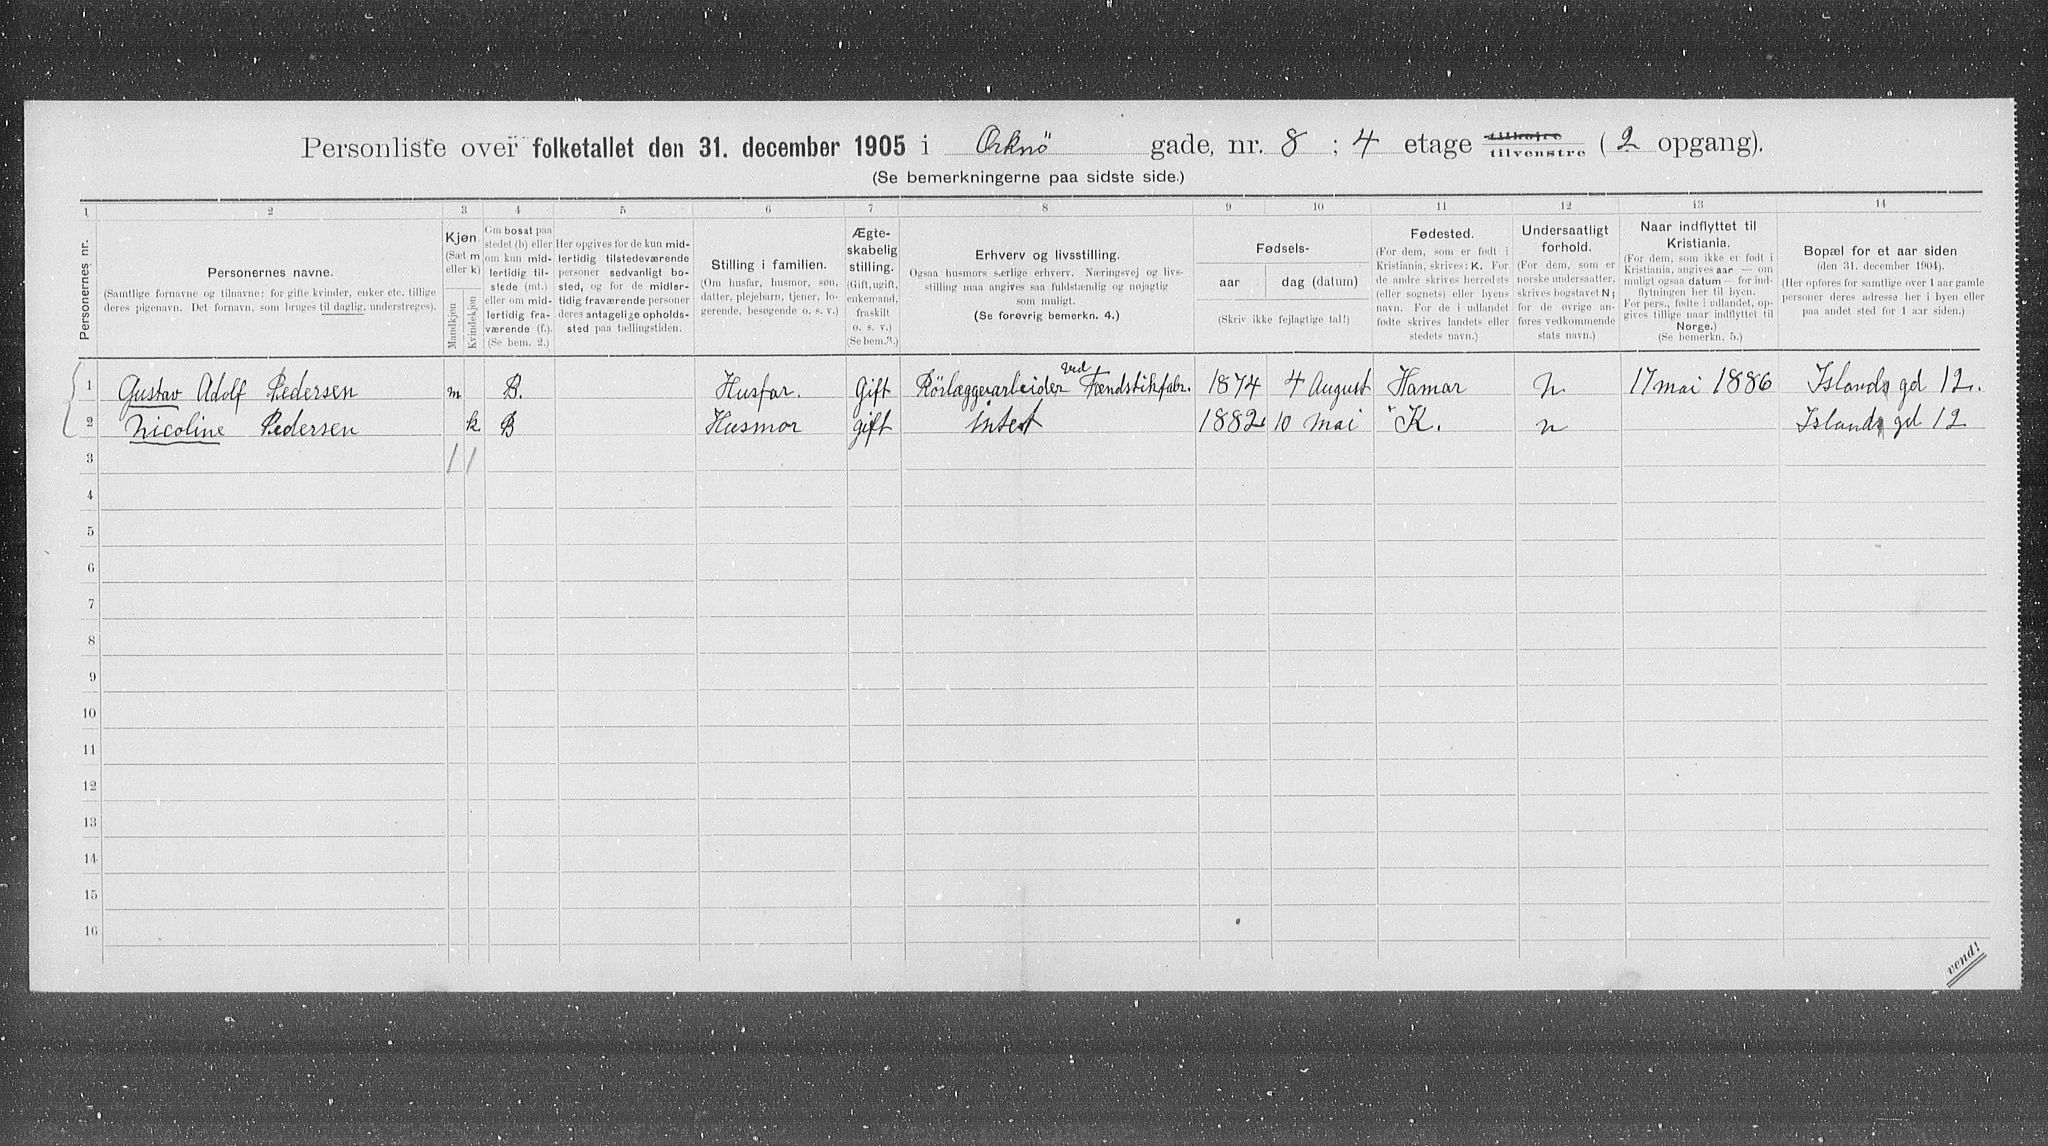 Personliste over folketallet den 31. december 1905 i Orknö gade, nr. 8 ; 4 etage tilhøire tilvenstre ( 2 opgang).
(Se bemerkningerne paa sidste side.)
1 2 3 4 5 6 7 8 9 10 11 12 13 14
Personernes nr.
Personernes navne.
(Samtlige fornavne og tilnavne; for gifte kvinder, enker etc. tillige
deres pigenavn. Det fornavn, som bruges til daglig, understreges).
Kjøn
(Sæt m
eller k)
Mandkjøn
Kvindekjøn
Om bosat paa
stedet (b) eller
om kun mid-
lertidig til-
stede (mt.)
eller om mid-
lertidig fra-
værende (f.)
(Se bem. 2.)
Her opgives for de kun mid-
lertidig tilstedeværende
personer sedvanligt bo-
sted, og for de midler-
tidig fraværende personer
deres antagelige opholds-
sted paa tællingstiden.
Stilling i familien.
(Om husfar, husmor, søn,
datter, plejebarn, tjener, lo-
gerende, besøgende o. s. v.)
Ægte-
skabelig
stilling.
(Gift, ugift,
enkemand,
fraskilt
o. s. v.)
(Se bem. 3.)
Erhverv og livsstilling.
Ogsaa husmors særlige erhverv. Næringsvej og livs-
stilling maa angives saa fuldstændig og nøjagtig
som muligt.
(Se forøvrig bemerkn. 4.)
Fødsels-
aar dag (datum)
(Skriv ikke fejlagtige tal!)
Fødested.
(For dem, som er født i
Kristiania, skrives: K. For
de andre skrives herredets
(eller sognets) eller byens
navn. For de i udlandet
fødte skrives landets eller
stedets navn.)
Undersaatligt
forhold.
(For dem, som er
norske undersaatter,
skrives bogstavet N;
for de øvrige an-
føres vedkommende
stats navn.)
Naar indflyttet til
Kristiania.
(For dem, som ikke er født i
Kristiania, angives aar — om
muligt ogsaa datum — for ind-
flytningen her til byen.
For pers., fødte i udlandet, op-
gives tillige naar indflyttet til
Norge.)
(Se bemerkn. 5.)
Bopæl for et aar siden
(den 31. december 1904).
(Her opføres for samtlige over 1 aar gamle
personer deres adresse her i byen eller
paa andet sted for 1 aar siden.)
1 Gustav Adolf Pedersen m B. Husfar. Gift Rörlæggerarbeider ved Fændstikfabr. 1874 4 August Hamar n 17 mai 1886 Islands gd 12.
2 Nicoline Pedersen k B Husmor gift intet 1882 10 mai K. n Islands gd 12
3 1 1
4
5
6
7
8
9
10
11
12
13
14
15
16
vend!